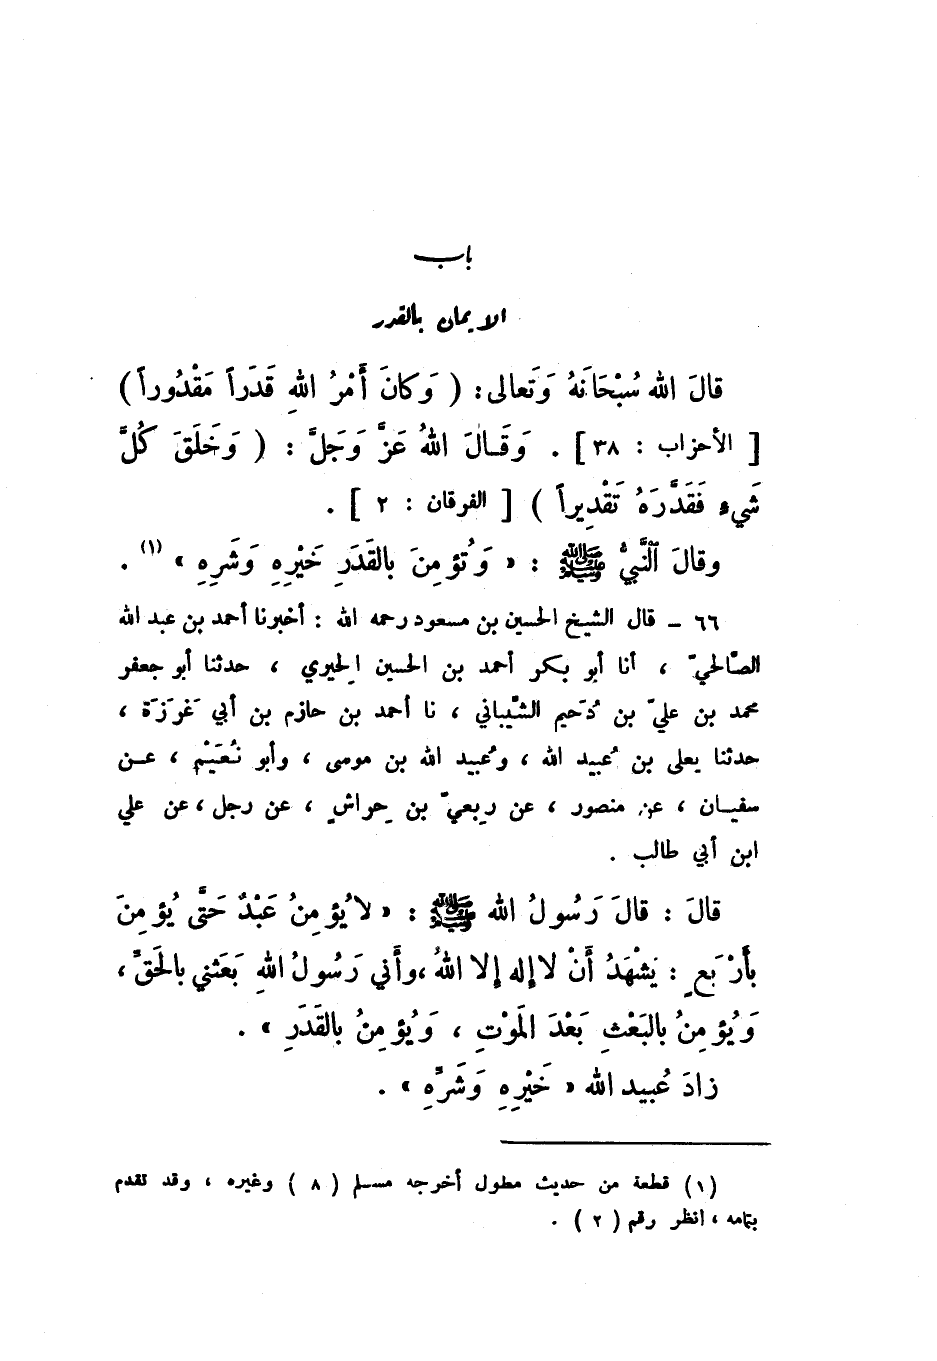 باب
الإيمان بالقدر
قالَ الله سُبْحَانَهُ وَتَعالى: ( وَكانَ أَمْرُ اللهِ قَدَراً مَقْدُوراً )
[ الأحزاب : ٣٨ ] . وَقَالَ اللهُ عَزَّ وَجَلَّ : ( وَخَلَقَ كُلَّ
شَيءٍ فَقَدَّرَهُ تَقْدِيراً ) [ الفرقان : ٢ ] .
وقالَ النَّبيُّ ﷺ : « وَتُؤمِنَ بالقَدَرِ خَيْرِهِ وَشَرِهِ » (١) .
٦٦ – قال الشيخ الحسين بن مسعود رحمه الله : أخبرنا أحمد بن عبد الله
الصَّالحيّ ، أنا أبو بكر أحمد بن الحسين الحِيري ، حدثنا أبو جعفر
محمد بن عليّ بن دُحَيم الشَّيباني ، نا أحمد بن حازم بن أبي غَرَزَة ،
حدثنا يعلى بن عُبيد الله ، وعُبيد الله بن موسى ، وأبو نُعَيْم ، عـن
سفيـان ، عن منصور ، عن رِبعيّ بن حِراشٍ ، عن رجل ، عن علي
ابن أبي طالب .
قالَ : قالَ رَسُولُ الله ﷺ : « لا يُؤمِنُ عَبْدٌ حَتَّى يُؤمِنَ
بأَرْبَعٍ : يَشْهَدُ أَنْ لا إله إلا اللهُ ، وأَني رَسُولُ اللهِ بَعَثني بالحَقِّ ،
وَيُؤمِنُ بالبَعْثِ بَعْدَ المَوْتِ ، وَيُؤمِنُ بالقَدَرِ » .
زادَ عُبيد الله « خَيْرِهِ وَشَرِّهِ » .
(١) قطعة من حديث مطول أخرجه مسلم ( ٨ ) وغيره ، وقد تقدم
بتمامه ، انظر رقم ( ٢ ) .